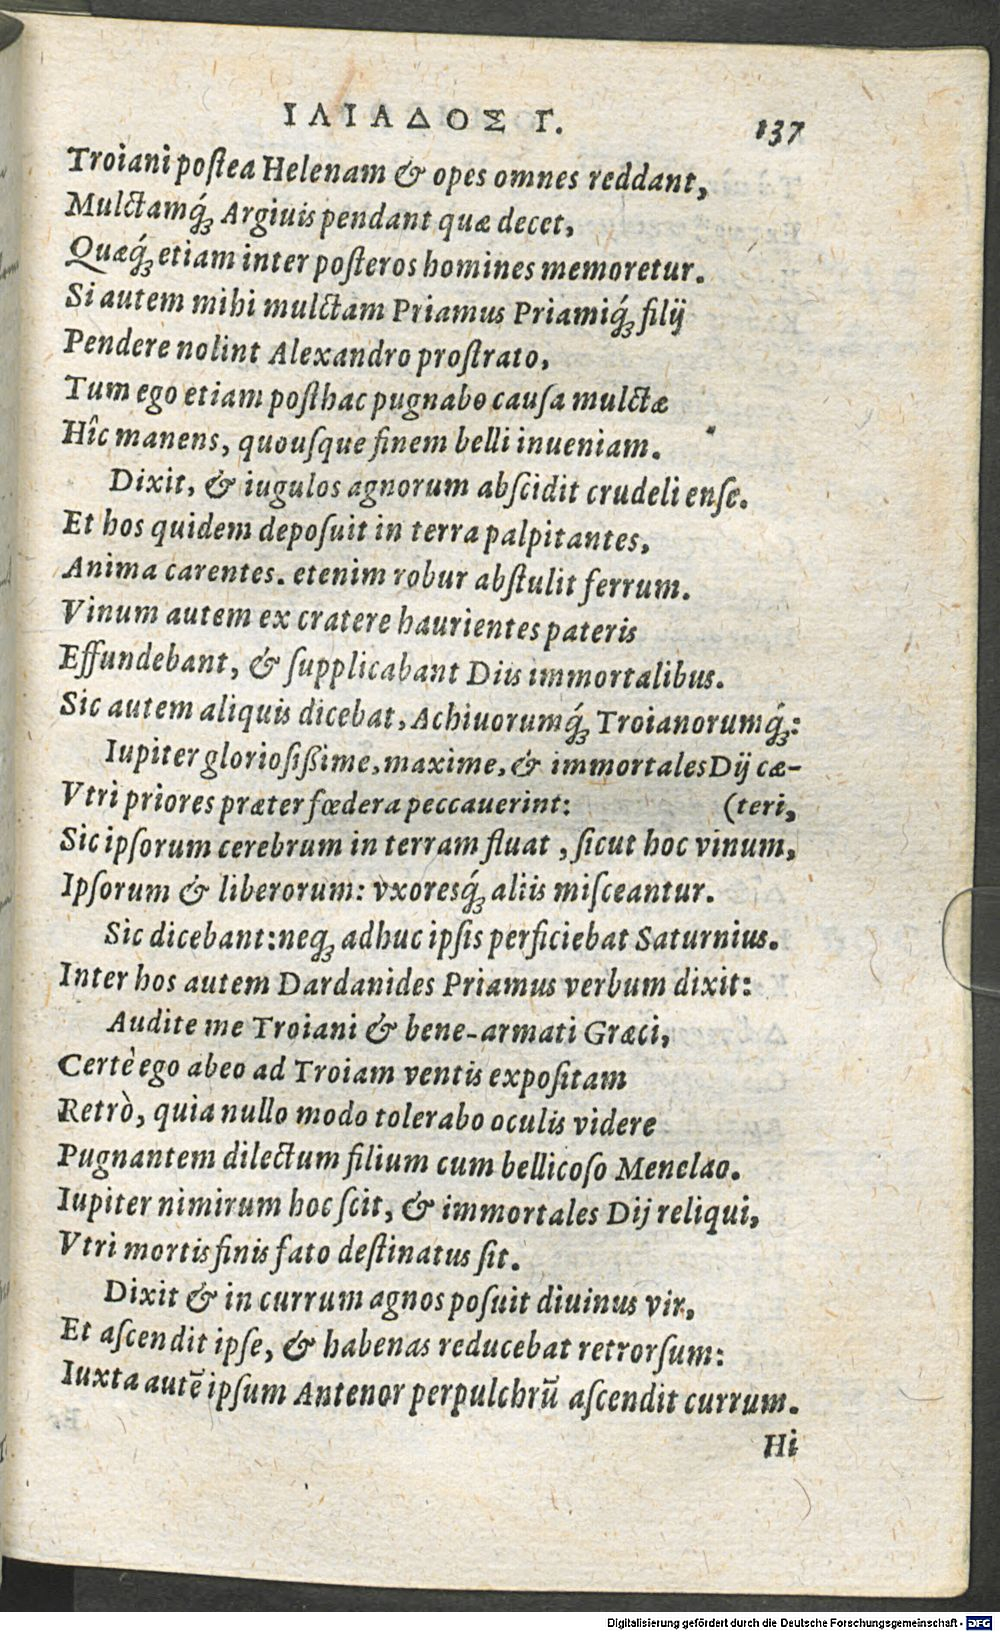 ΙΛΙΑΔΟΣ Γ. 137
Troiani poſtea Helenam & opes omnes reddant,
Mulctamq́ꝫ Argiuis pendant quæ decet,
Quæq́ꝫ etiam inter poſteros homines memoretur.
Si autem mihi mulctam Priamus Priamiq́ꝫ filij
Pendere nolint Alexandro proſtrato,
Tum ego etiam poſthac pugnabo cauſa mulctæ
Hîc manens, quouſque finem belli inueniam.
Dixit, & iugulos agnorum abſcidit crudeli enſe.
Et hos quidem depoſuit in terra palpitantes,
Anima carentes. etenim robur abſtulit ferrum.
Vinum autem ex cratere haurientes pateris
Effundebant, & ſupplicabant Diis immortalibus.
Sic autem aliquis dicebat, Achiuorumq́ꝫ Troianorumq́ꝫ:
Iupiter glorioſiſſime, maxime, & immortales Dij cæ-
Vtri priores præter fœdera peccauerint: (teri,
Sic ipſorum cerebrum in terram fluat, ſicut hoc vinum,
Ipſorum & liberorum: vxoresq́ꝫ aliis miſceantur.
Sic dicebant: neqꝫ adhuc ipſis perficiebat Saturnius.
Inter hos autem Dardanides Priamus verbum dixit:
Audite me Troiani & bene-armati Græci,
Certè ego abeo ad Troiam ventis expoſitam
Retrò, quia nullo modo tolerabo oculis videre
Pugnantem dilectum filium cum bellicoſo Menelao.
Iupiter nimirum hoc ſcit, & immortales Dij reliqui,
Vtri mortis finis fato deſtinatus ſit.
Dixit & in currum agnos poſuit diuinus vir,
Et aſcendit ipſe, & habenas reducebat retrorſum:
Iuxta autē ipſum Antenor perpulchrū aſcendit currum.
Hi
Digitalisierung gefördert durch die Deutsche Forschungsgemeinschaft - DFG